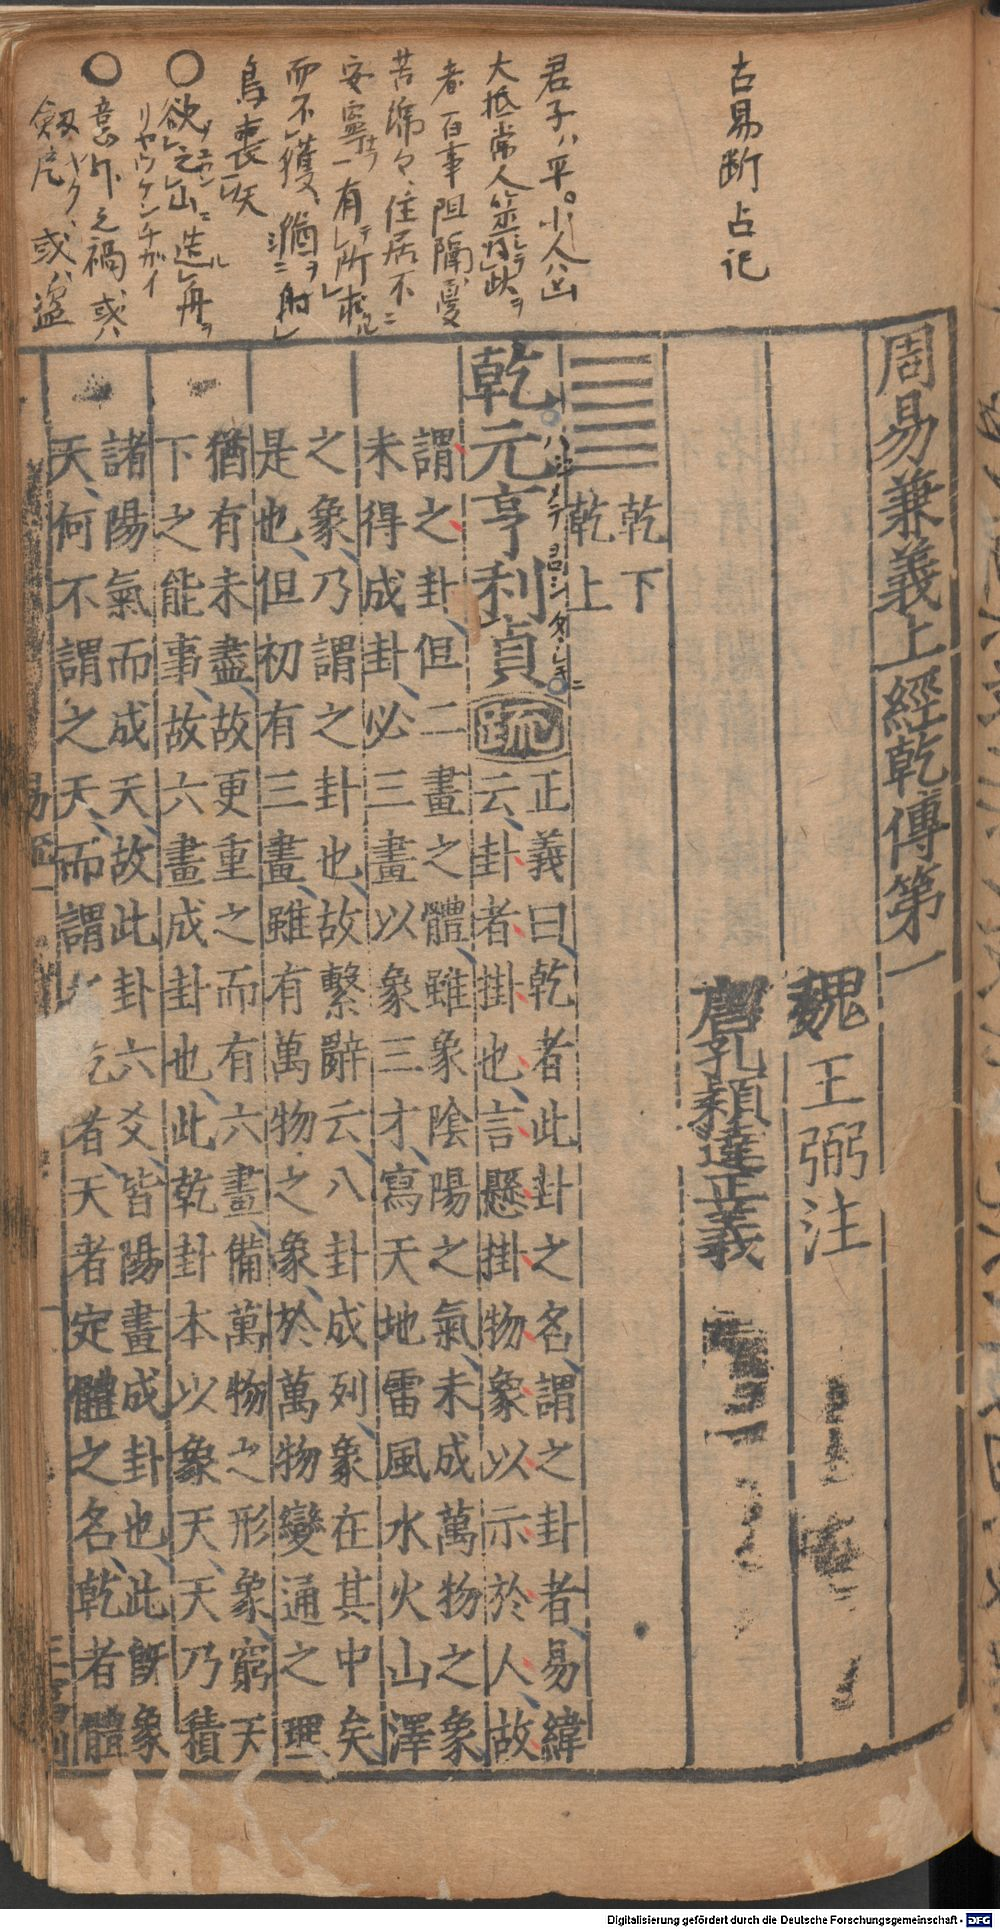 古易断占記
君子ハ平。小人ハ凶
大抵常人筮得此ヲ
者百事阻隔憂
苦綿々住居不ニ
安寧一有レ所レ求ルテ
而不レ獲猶ヲ射レ
鳥喪レ矢
○欲レ之レ山ニ造レ舟ヲ
リヤウケンチガイ
○意外之禍或ハ
劔厄或ハ盗
周易兼義上經乾傳第一
魏 王弼注
唐孔穎達正義
乾下
乾上
乾元亨利貞疏
正義曰乾者此卦之名謂之卦者易緯
云卦者掛也言懸掛物象以示於人故
謂之卦但二畫之體雖象陰陽之氣未成萬物之象
未得成卦必三畫以象三才寫天地雷風水火山澤
之象乃謂之卦也故繫辭云八卦成列象在其中矣
是也但初有三畫雖有萬物之象於萬物變通之理
猶有未盡故更重之而有六畫備萬物之形象窮天
下之能事故六畫成卦也此乾卦本以象天天乃積
諸陽氣而成天故此卦六爻皆陽畫成卦也此既象
天何不謂之天而謂 乾者天者定體之名乾者體
易疏一
Digitalisierung gefördert durch die Deutsche Forschungsgemeinschaft - DFG